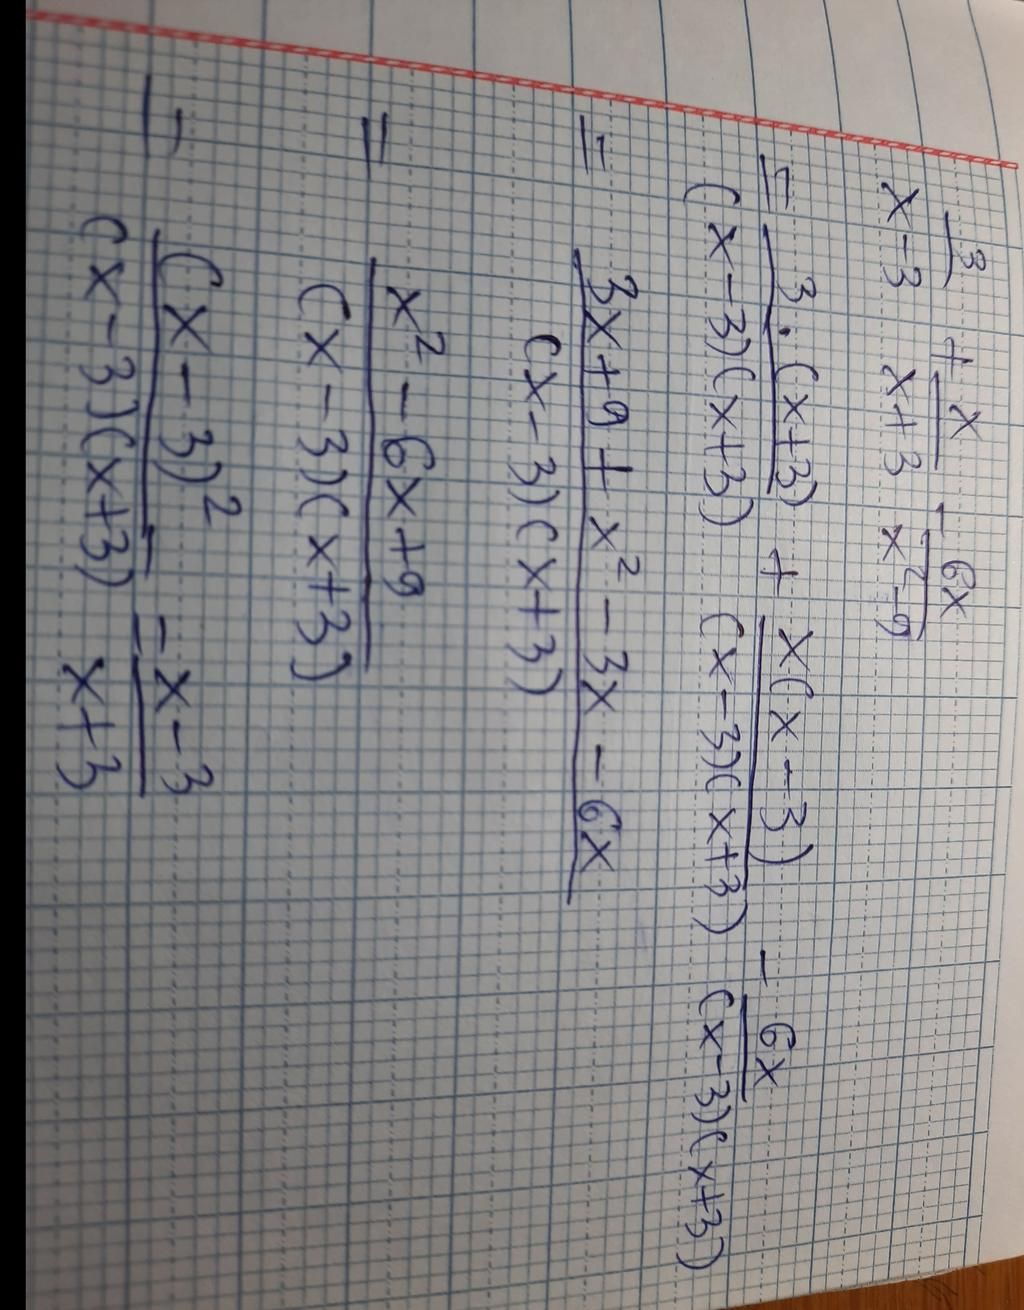 3/(x-3) + x/(x+3) - 6x/(x²-9)
= 3.(x+3)/((x-3)(x+3)) + x(x-3)/((x-3)(x+3)) - 6x/((x-3)(x+3))
= (3x+9+x²-3x-6x)/((x-3)(x+3))
= (x²-6x+9)/((x-3)(x+3))
= (x-3)²/((x-3)(x+3)) = (x-3)/(x+3)